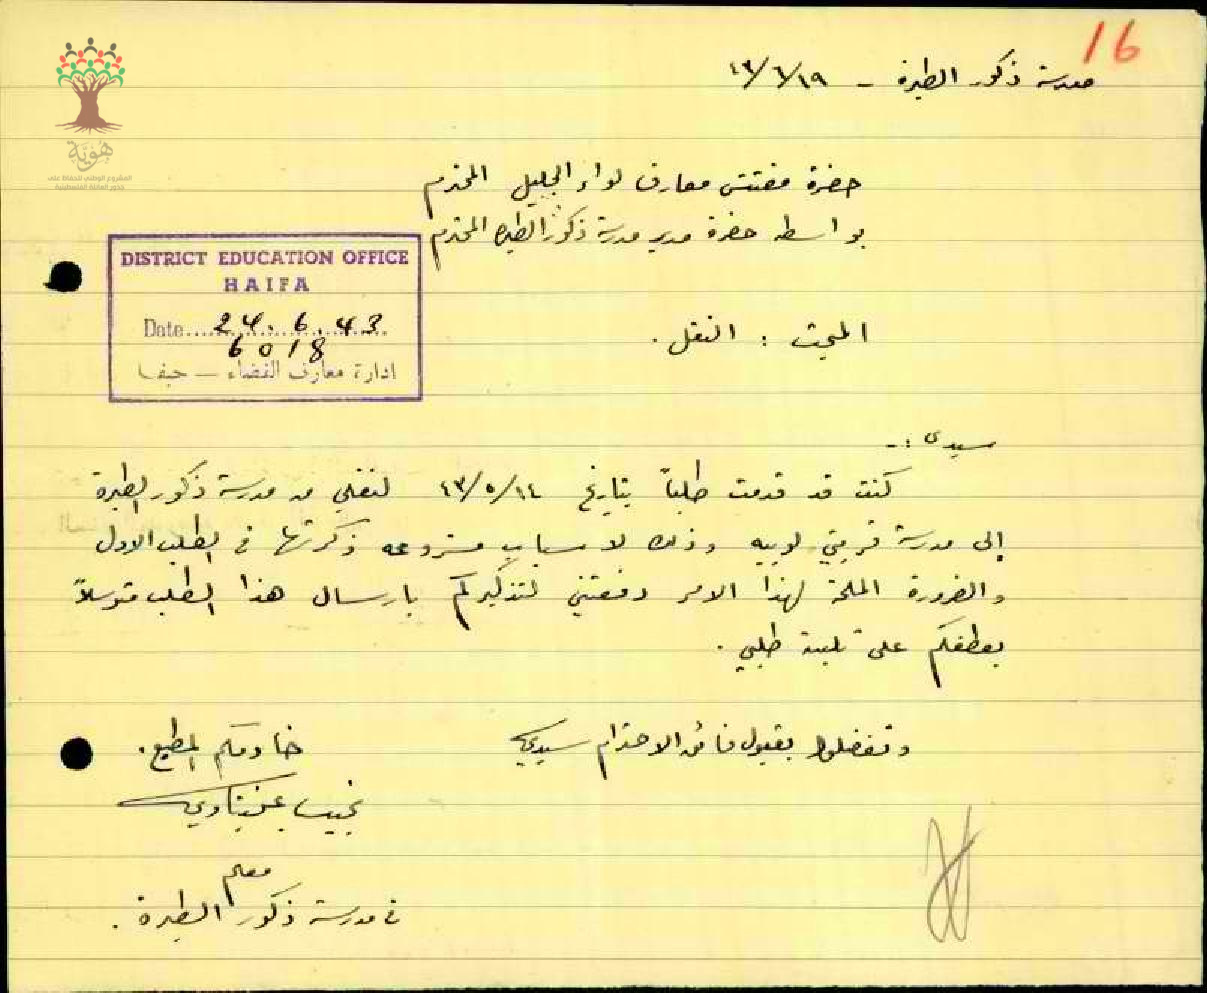 16
مدرسة ذكور الطيرة - ٤٣/٦/١٩
هُوِيَّة
المشروع الوطني للحفاظ على
جذور العائلة الفلسطينية
حضرة مفتش معارف لواء الجليل المحترم
بواسطة حضرة مدير مدرسة ذكور الطيرة المحترم
DISTRICT EDUCATION OFFICE
HAIFA
Date 24.6.43
6018
ادارة معارف القضاء — حيفا
المبحث : النقل .
سيدي :-
كنت قد قدمت طلباً بتاريخ ٤٣/٥/١٤ لنقلي من مدرسة ذكور الطيرة
إلى مدرسة قريتي لوبيه وذلك لاسباب مشروعه ذكرتها في الطلب الاول
والضرورة الملحة لهذا الامر دفعتني لتذكيركم بارسال هذا الطلب متوسلاً
بعطفكم على تلبية طلبي .
وتفضلوا بقبول فائق الاحترام سيدي
خادمكم المطيع .
نجيب
معلم
في مدرسة ذكور الطيرة .